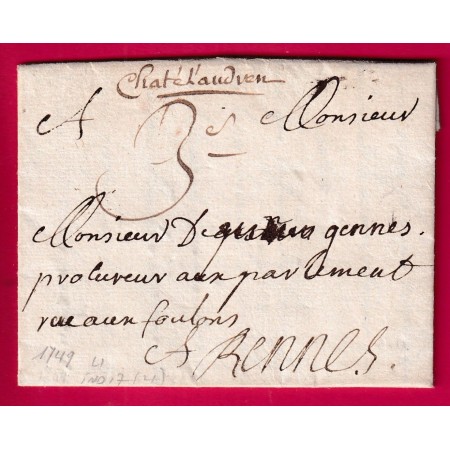 Chatelaudren
A Monsieur
3 s
Monsieur De gennes.
procureur aux parlement
rue aux foulons
A Rennes.
1749